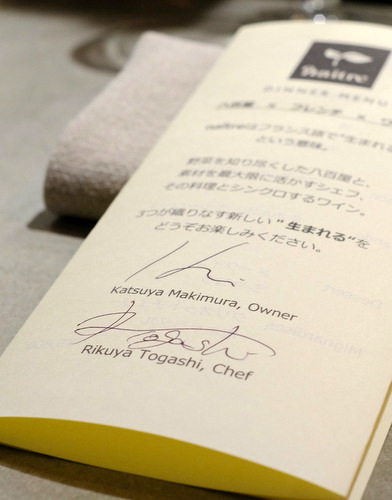 naître
DINNER MENU
八百屋 × フレンチ × ワ
naîtreはフランス語で"生まれる
という意味。
野菜を知り尽くした八百屋と、
素材を最大限に活かすシェフ、
その料理とシンクロするワイン。
3つが織りなす新しい"生まれる"を
どうぞお楽しみください。
Katsuya Makimura, Owner
Togashi
Rikuya Togashi, Chef